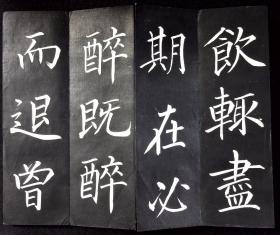 飲輒盡
期在必
醉既醉
而退曾